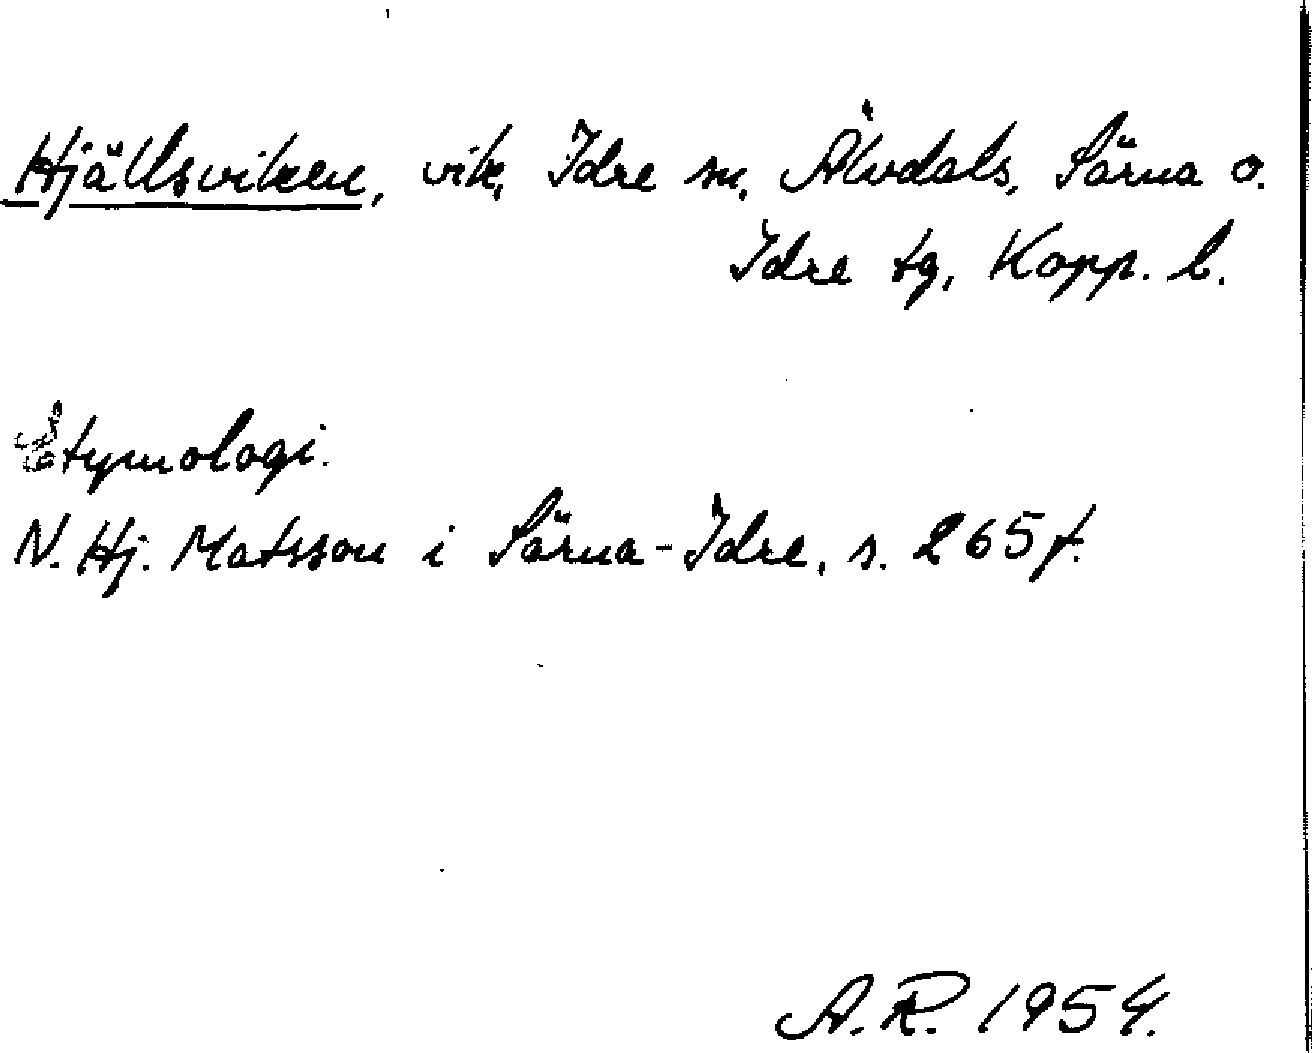 Hjällsviken, vik, Idre sn, Älvdals, Särna o.
Idre tg, Kopp. l.
Etymologi.
N. Hj. Matsson i Särna-Idre, s. 265 f.
A.R. 1954.